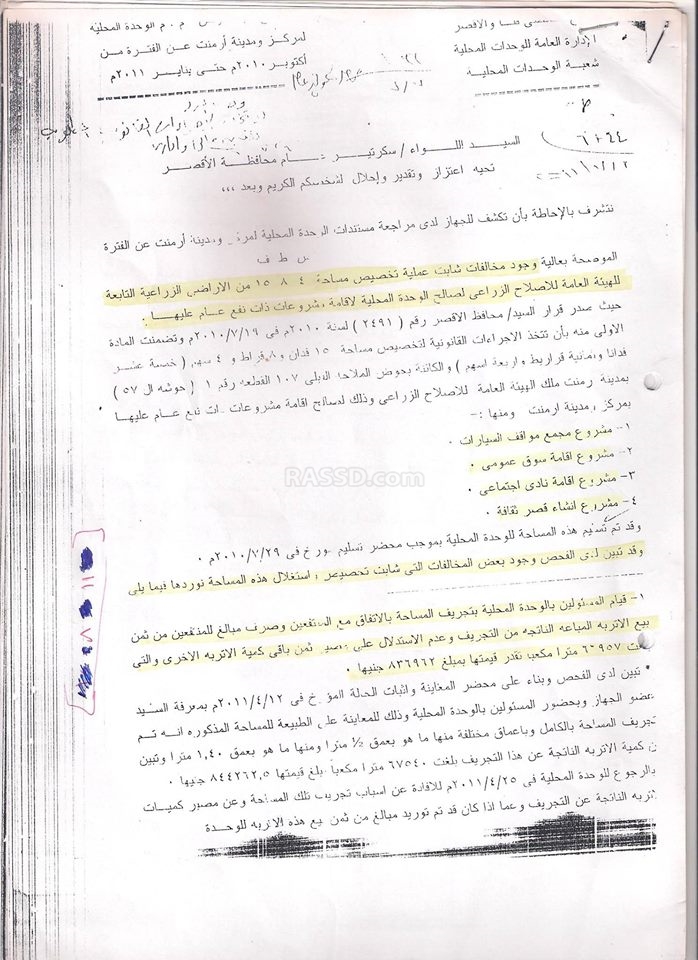 قنا والاقصر
الوحدة المحلية
الإدارة العامة للوحدات المحلية
لمركز ومدينة أرمنت عن الفترة من
شعبة الوحدات المحليه
أكتوبر ٢٠١٠م حتى يناير ٢٠١١م
٦٠٤٤
السيد اللواء / سكرتير عام محافظة الأقصر
تحيه اعتزاز وتقدير وإجلال لشخصكم الكريم وبعد ،،،
نتشرف بالإحاطة بأن تكشف للجهاز لدى مراجعة مستندات الوحدة المحلية ومدينة أرمنت عن الفترة
س ط ف
الموضحة بعالية وجود مخالفات شابت عملية تخصيص مساحة ٤ ٨ ١٥ من الاراضى الزراعية التابعة
للهيئة العامة للاصلاح الزراعى لصالح الوحدة المحلية لاقامة مشروعات ذات نفع عام عليها .
حيث صدر قرار السيد/ محافظ الاقصر رقم ( ٢٤٩١ ) لسنة ٢٠١٠م فى ٢٠١٠/٧/١٩م وتضمنت المادة
الاولى منه بأن تتخذ الاجراءات القانونية لتخصيص مساحة ١٥ فدان و٨ قراط و ٤ سهم ( خمسة عشر
فدانا وثمانية قراريط واربعة اسهم ) والكائنة بحوض الملاحة القبلى ١٠٧ القطعه رقم ١ ( حوشه ال ٥٧ )
بمدينة ارمنت ملك الهيئة العامة للاصلاح الزراعى وذلك لصالح اقامة مشروعات ذات نفع عام عليها
بمركز ومدينة ارمنت ومنها :-
١- مشروع مجمع مواقف السيارات .
٢- مشروع اقامة سوق عمومى .
٣- مشروع اقامة نادى اجتماعى .
٤- مشروع انشاء قصر ثقافة .
RASSD.com
وقد تم تسليم هذه المساحة للوحدة المحلية بموجب محضر تسليم مورخ فى ٢٠١٠/٧/٢٩م .
وقد تبين لدى الفحص وجود بعض المخالفات التى شابت تخصيص واستغلال هذه المساحة نوردها فيما يلى
١- قيام المسئولين بالوحدة المحلية بتجريف المساحة بالاتفاق مع المنتفعين وصرف مبالغ للمنتفعين من ثمن
بيع الاتربه المباعه الناتجه من التجريف وعدم الاستدلال على ثمن باقى كمية الاتربه الاخرى والتى
مترا مكعبا تقدر قيمتها بمبلغ ٨٣٦٩٦٢ جنيها .
تبين لدى الفحص وبناء على محضر المعاينة واثبات الحالة المؤرخ فى ٢٠١١/٤/١٢م بمعرفة السيد
عضو الجهاز وبحضور المسئولين بالوحدة المحلية وذلك للمعاينة على الطبيعة للمساحة المذكوره انه تم
تجريف المساحة بالكامل وباعماق مختلفة منها ما هو بعمق ½ مترا ومنها ما هو بعمق ١,٤٠ مترا وتبين
ان كمية الاتربه الناتجة عن هذا التجريف بلغت ٦٧٥٤٠ مترا مكعبا بلغ قيمتها ٨٤٤٢٦٢,٥ جنيها .
بالرجوع للوحدة المحلية فى ٢٠١١/٤/٢٥م للافادة عن اسباب تجريف تلك المساحة وعن مصير كميات
الاتربه الناتجة عن التجريف وعما اذا كان قد تم توريد مبالغ من ثمن بيع هذه الاتربه للوحدة